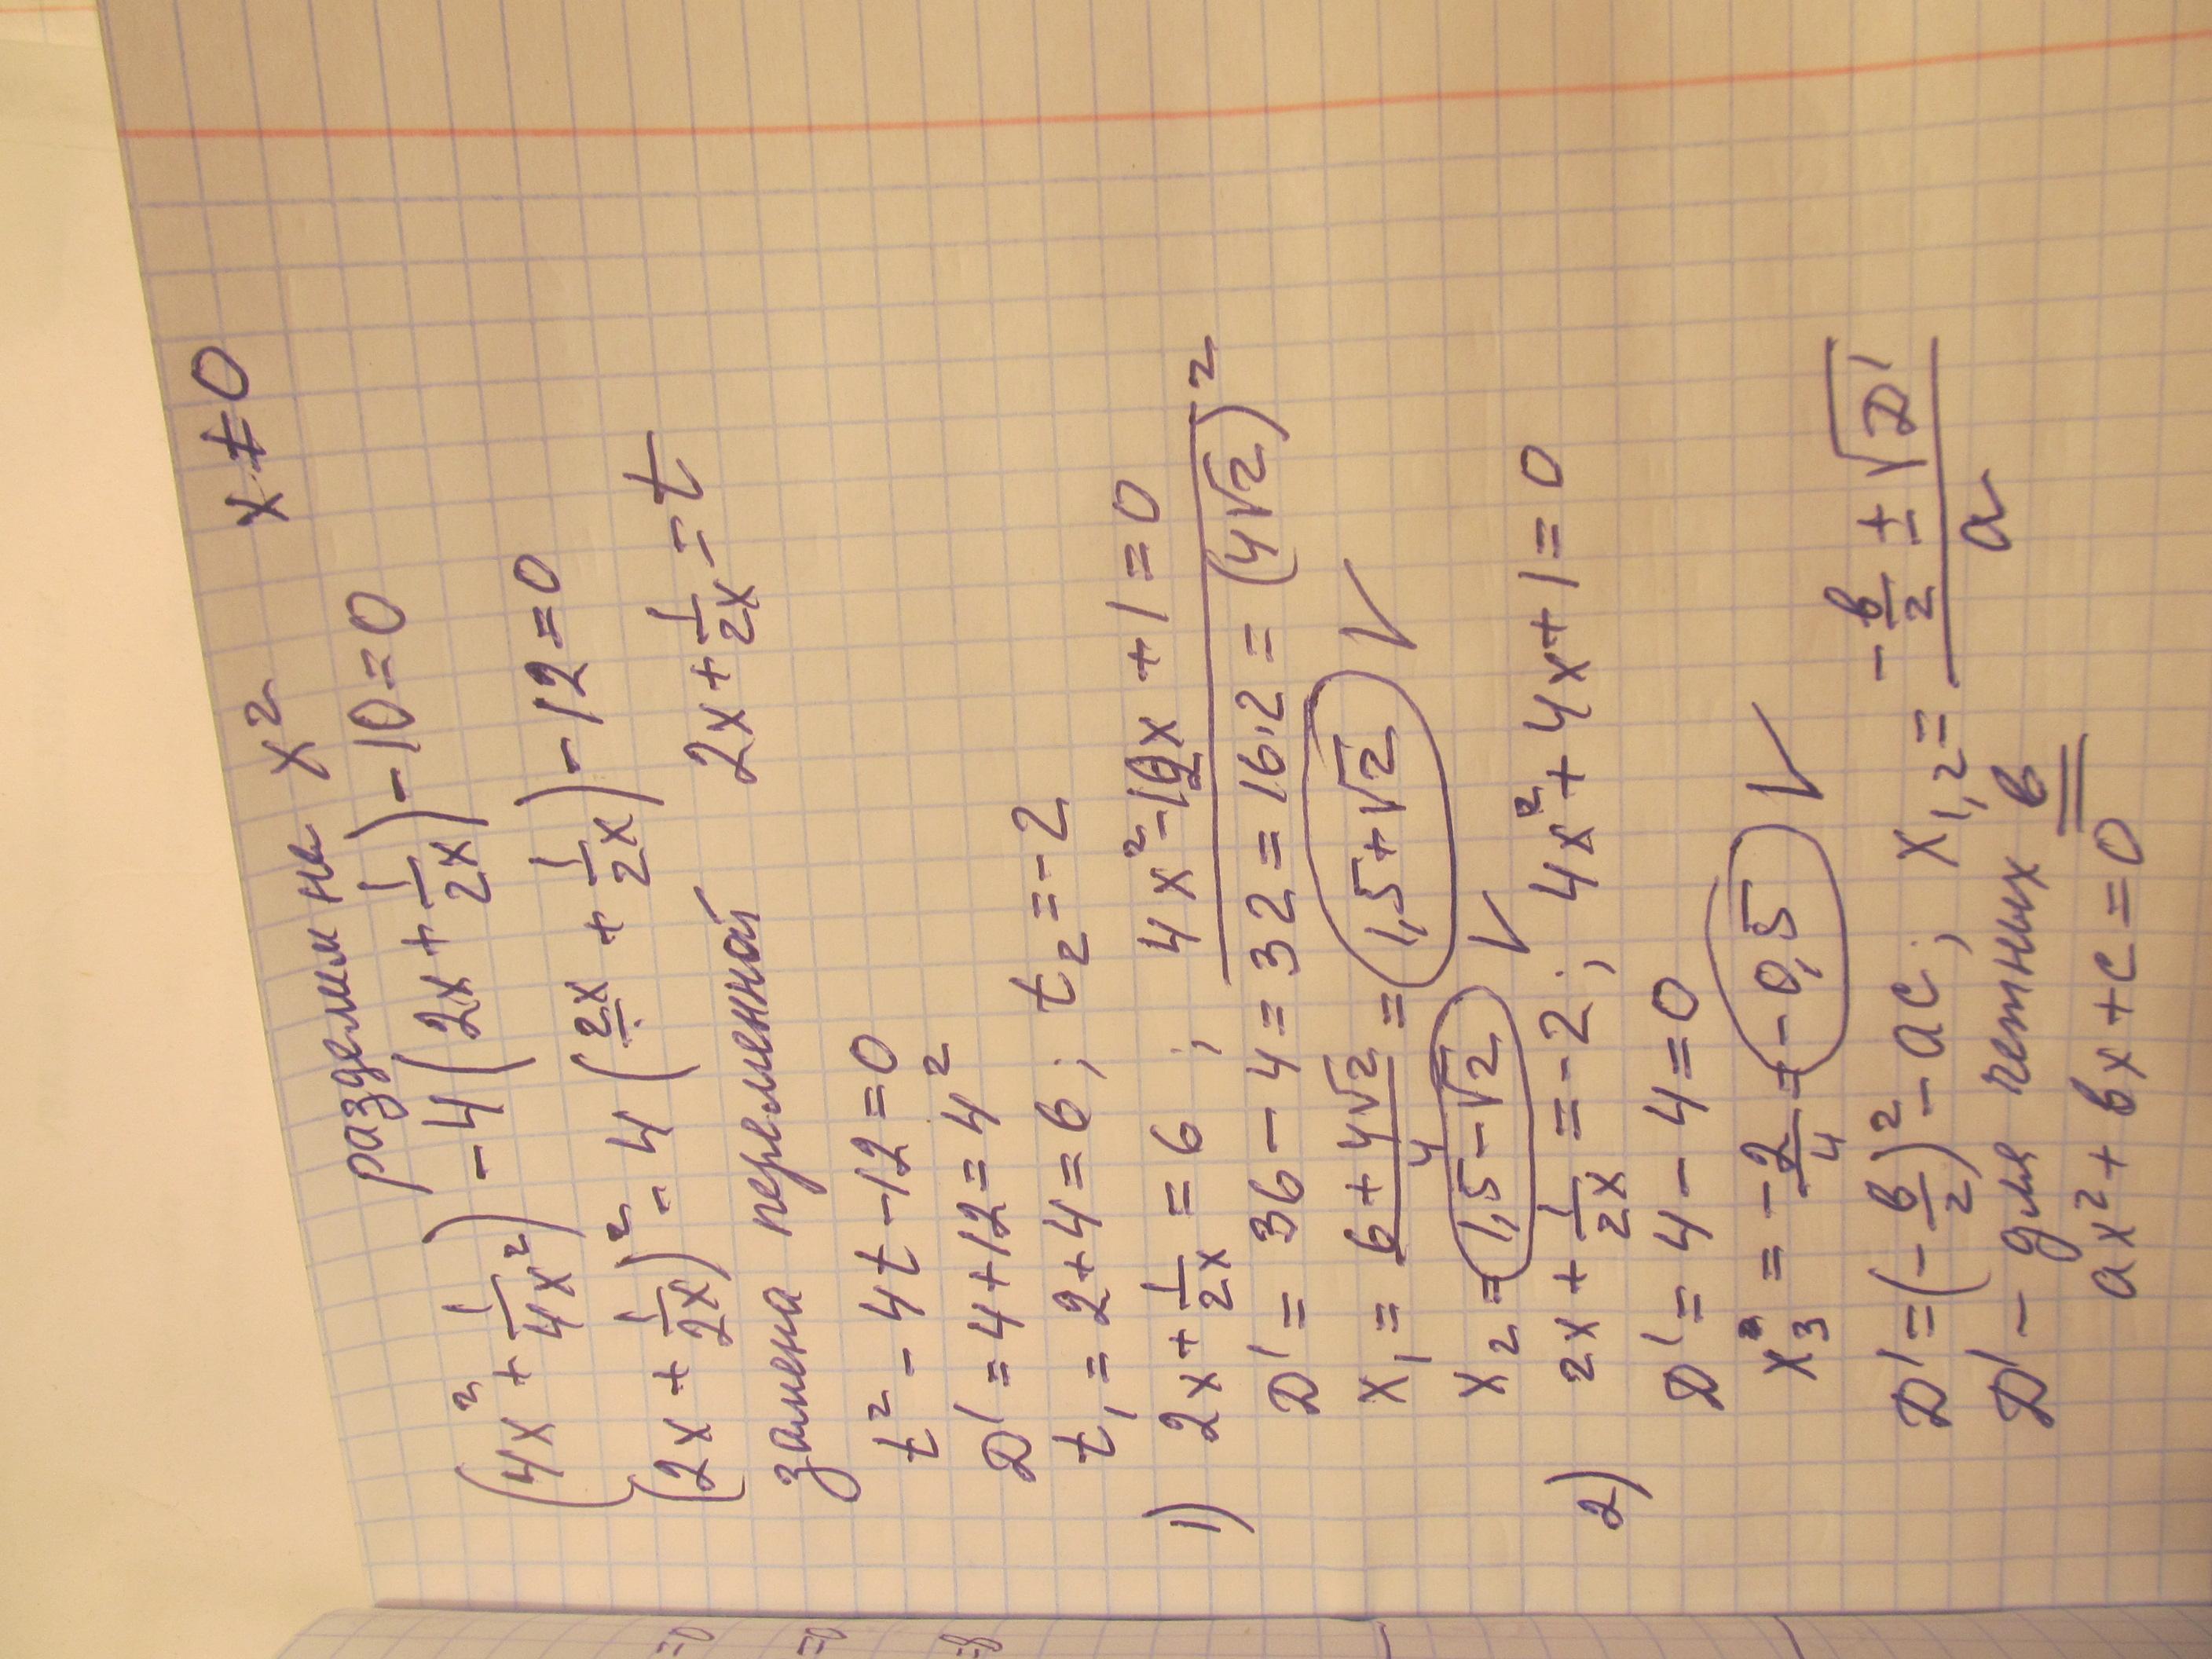 разделим на x² x≠0
(4x² + 1/4x²) - 4(2x + 1/2x) - 10 = 0
(2x + 1/2x)² - 4(2x + 1/2x) - 12 = 0
замена переменной 2x + 1/2x = t
t² - 4t - 12 = 0
D' = 4 + 12 = 4²
t₁ = 2 + 4 = 6; t₂ = -2
1) 2x + 1/2x = 6 ; 4x² - 12x + 1 = 0
D' = 36 - 4 = 32 = 16,2 = (4√2)²
x₁ = 6 + 4√2/4 = 1,5 + √2
x₂ = 1,5 - √2
2) 2x + 1/2x = -2; 4x² + 4x + 1 = 0
D' = 4 - 4 = 0
x₃ = -2/4 = -0,5
D' = (-b/2)² - ac; x₁,₂ = -b/2 ± √D'/a
D' - для четных b
ax² + bx + c = 0
=0
=0